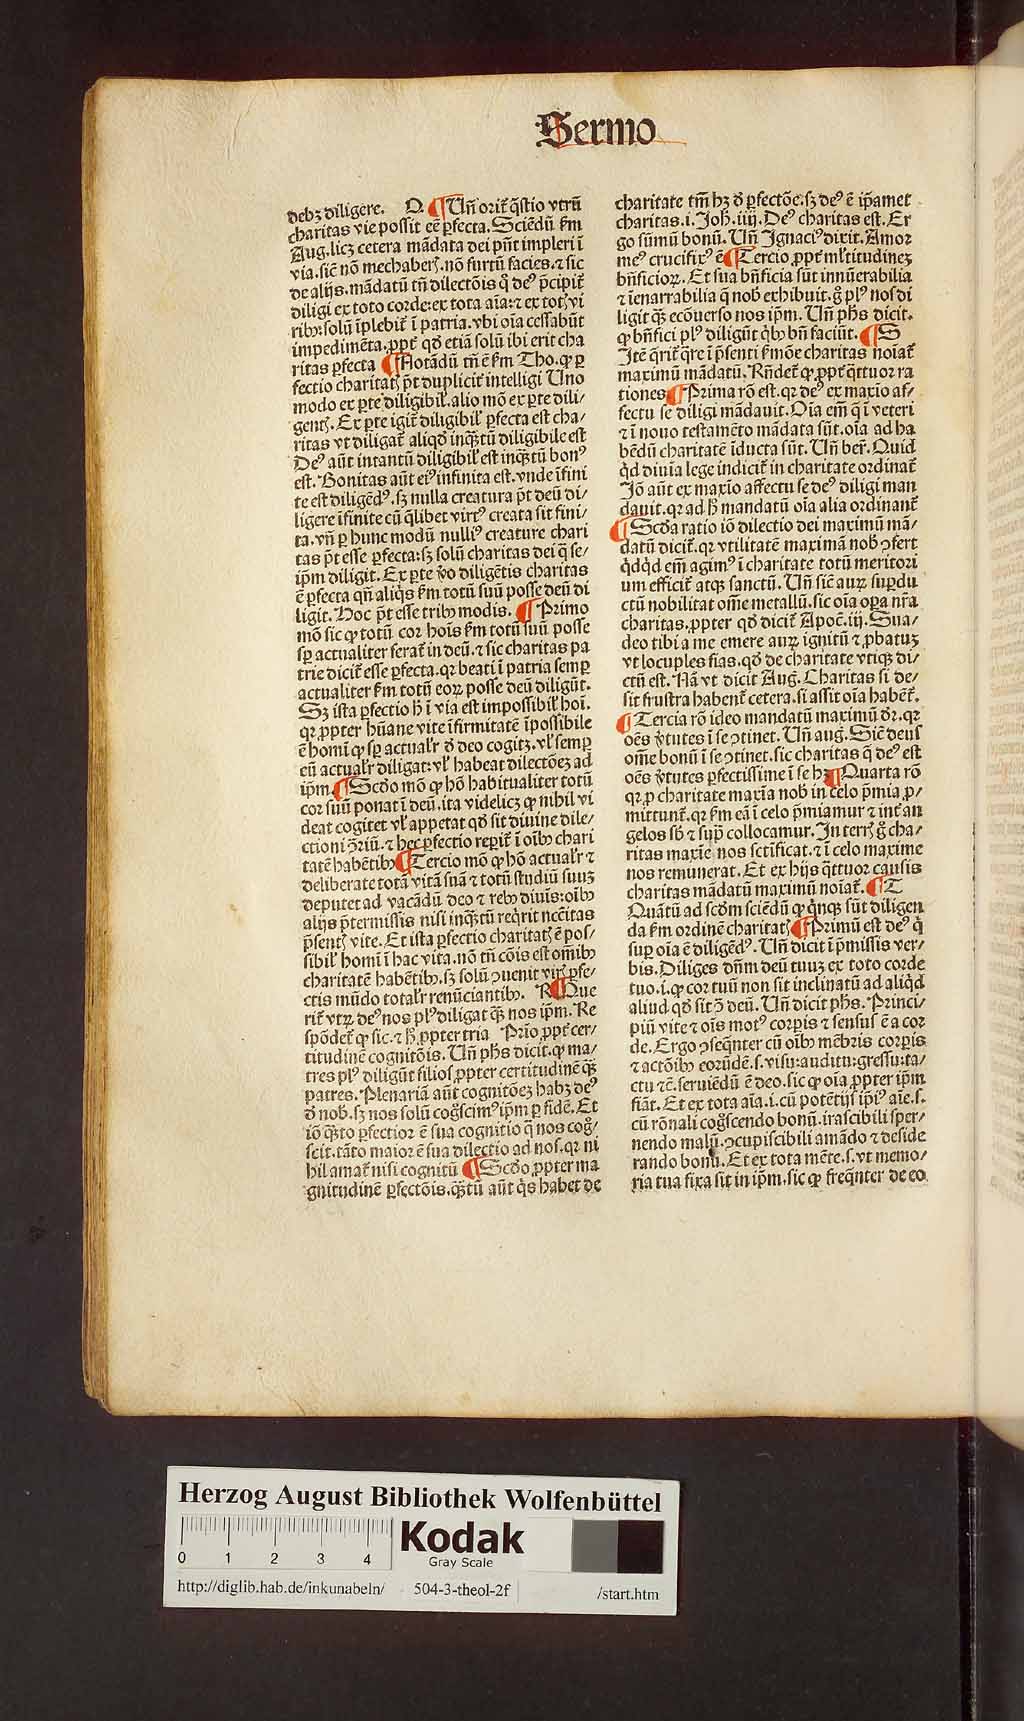 Sermo
debꝫ diligere. Q. ¶ Un̄ orit̃ q̄stio vtrū
charitas vie possit eē ꝑfecta. Sciēdū ẜm
Aug. licꝫ cetera mādata dei pn̄t impleri ī
via. sic̄ nō mechaberꝭ. nō furtū facies. ⁊ sic
de alijs. mādatū tn̄ dilectōis q̄ deꝰ p̄cipit̃
diligi ex toto corde: ex tota aīa: ⁊ ex totꝭ vi
ribꝰ. solū īplebit̃ ī patria. vbi oīa cessabūt
impedimēta. ꝓpt̃ qd̓ etiā solū ibi erit cha
ritas ꝑfecta ¶ Notādū m̄ ē ẜm Tho. ꝙ ꝑ
fectio charitatꝭ pt̄ dupliciť intelligi Uno
modo ex ꝑte diligibil̓. alio mō ex ꝑte dili⸗
gentꝭ. Ex ꝑte igit̃ diligibil̓ ꝑfecta est cha⸗
ritas vt diligat̃ aliqd̓ inqꝫtū diligibile est
Deꝰ aūt intantū diligibil̓ est inqꝫtū bonꝰ
est. Bonitas aūt eiꝰ infinita est. vnde īfini
te est diligēdꝰ. sꝫ nulla creatura pt̄ deū di⸗
ligere īfinite cū q̄libet virtꝰ creata sit fini⸗
ta. vn̄ ꝑ hunc modū nulliꝰ creature chari
tas pt̄ esse ꝑfecta: sꝫ solū charitas dei q̄ se⸗
ip̄m diligit. Ex ꝑte v̓o diligētis charitas
ē ꝑfecta qn̄ aliq̇s ẜm totū suū posse deū di
ligit. Hoc pt̄ esse tribꝰ modis. ¶ Primo
mō sic ꝙ totū cor hoīs ẜm totū suū posse
sꝑ actualiter feraī̃ in deū. ⁊ sic charitas pa
trie dicit̃ esse ꝑfecta. qꝛ beati ī patria semꝑ
actualiter ẜm totū eoꝝ posse deū diligūt.
Sꝫ ista ꝑfectio h̓ ī via est impossibil̓ hoī.
qꝛ ꝓpter hūane vite īfirmitatē īpossibile
ē homī ꝙ sꝑ actual̓r d̓ deo cogitꝫ. vl̓ semꝑ
eū actual̓r diligat: vl̓ habeat dilectōeꝫ ad
ip̄m. ¶ Scd̓o mō ꝙ hō habitualiter totū
cor suū ponat ī deū. ita videlicꝫ ꝙ nihil vi
deat cogitet vl̓ appetat qd̓ sit diuine dile⸗
ctioni ↄ̄riū. ⁊ hec ꝑfectio reꝑit̃ ī oībꝰ chari
tatē habētibꝰ ¶ Tercio mō ꝙ hō actual̓r ⁊
deliberate totā vitā suā ⁊ totū studiū suuꝫ
deputet ad vacādū deo ⁊ rebꝰ diuīs: oībꝰ
alijs p̄termissis nisi inqꝫtū reqͥrit nc̄citas
p̄sentꝭ vite. Et ista ꝑfectio charitatꝭ ē pos⸗
sibil̓ homī ī hac vita. nō tn̄ cōis est om̄ibꝰ
charitatē habētibꝰ. sꝫ solū ↄuenit virꝭ ꝑfe⸗
ctis mūdo total̓r renūciantibꝰ. R ¶ Que
rit̃ vtꝝ deꝰ nos plꝰ diligat qꝫ nos ip̄m. Re
spōdet̃ ꝙ sic. ⁊ h̓ ꝓpter tria Prīo ꝓpt̃ cer⸗
titudinē cognitōis. Un̄ ph̄s dicit. ꝙ ma⸗
tres plꝰ diligūt filios ꝓpter certitudinē qꝫ
patres. Plenariā aūt cognitōeꝫ habꝫ deꝰ
d̓ nob̄. sꝫ nos solū cog̊scimꝰ ip̄m ꝑ fidē. Et
iō qꝫto ꝑfectior ē sua cognitio q̄ nos cog̊⸗
scit. tāto maior ē sua dilectio ad nos. qꝛ ni
hil amat̃ nisi cognitū ¶ Scd̓o ꝓpter ma
gnitudinē ꝑfectōis. qꝫtū aūt qͥs habet de
charitate tm̄ hꝫ d̓ ꝑfectōe. sꝫ deꝰ ē ip̄amet
charitas. i. Joh̄. iiij. Deꝰ charitas est. Er
go sūmū bonū. Un̄ Ignaciꝰ dixit. Amor
meꝰ crucifixꝰ ē ¶ Tercio ꝓpt̃ ml̓titudineꝫ
bn̄ficioꝝ. Et sua bn̄ficia sūt innūerabilia
⁊ ienarrabilia q̄ nob̄ exhibuit. g̊ plꝰ nos di
ligit qꝫ ecōuerso nos ip̄m. Un̄ ph̄s dicit.
ꝙ bn̄fici plꝰ diligūt qͥbꝰ bn̄ faciūt. ¶ S
Itē q̄rit̃ q̄re ī p̄senti ẜmōe charitas noīat̃
maximū mādatū. Rn̄det̃ ꝙ ꝓpt̃ qͣttuor ra
tiones ¶ Prima rō est. qꝛ deꝰ ex maxīo af⸗
fectu se diligi mādauit. Oīa em̄ q̄ ī veteri
⁊ ī nouo testamēto mādata sūt. oīa ad ha
bēdū charitatē īducta sūt. Un̄ ber̄. Quid
qͥd diuīa lege indicit̃ in charitate ordinat̃
Iō aūt ex maxīo affectu se deꝰ diligi man
dauit. qꝛ ad h̓ mandatū oīa alia ordinant̃
¶ Scd̓a ratio iō dilectio dei maximū mā⸗
datū dicit̃. qꝛ vtilitatē maximā nob̄ ↄfert
qͥdqͥd em̄ agimꝰ ī charitate totū meritori
um efficit̃ atqꝫ sanctū. Un̄ sic̄ auꝝ suꝑdu
ctū nobilitat om̄e metallū. sic oīa oꝑa nr̄a
charitas. ꝓpter qd̓ dicit̃ Apoc̄. iij. Sua⸗
deo tibi a me emere auꝝ ignitū ⁊ ꝓbatuꝫ
vt locuples fias. qd̓ de charitate vtiqꝫ di⸗
ctū est. Nā vt dicit Auḡ. Charitas si de⸗
sit frustra habent̃ cetera. si assit oīa habēt̃.
¶ Tercia rō ideo mandatū maximū dr̄. qꝛ
oēs v̓tutes ī se ↄtinet. Un̄ auḡ. Sic̄ deus
om̄e bonū ī se ↄtinet. sic charitas q̄ deꝰ est
oēs v̓tutes ꝑfectissime ī se hꝫ ¶ Quarta rō
qꝛ ꝓ charitate maxīa nob̄ in celo p̄mia ꝓ⸗
mittunt̃. qꝛ ẜm eā ī celo p̄miamur ⁊ int̃ an
gelos sb̄ ⁊ suꝑ collocamur. In terrꝭ g̊ cha⸗
ritas maxīe nos sctificat. ⁊ ī celo maxime
nos remunerat. Et ex hijs qͣttuor causis
charitas mādatū maximū noīat̃. ¶ T
Quātū ad scd̓m sciēdū ꝙ qͥnqꝫ sūt diligen
da ẜm ordinē charitatꝭ ¶ Primū est deꝰ qͥ
suꝑ oīa ē diligēdꝰ. Un̄ dicit ī p̄missis ver⸗
bis. Diliges dn̄m deū tuuꝫ ex toto corde
tuo. i. ꝙ cor tuū non sit inclinatū ad aliqͥd
aliud qd̓ sit ↄ̄ deū. Un̄ dicit ph̄s. Princi⸗
piū vite ⁊ oīs motꝰ corꝑis ⁊ sensus ē a cor
de. Ergo ↄseq̄nter cū oībꝰ mēbris corꝑis
⁊ actōibꝰ eorūdē. s. visu: auditu: gressu: ta⸗
ctu ⁊c̄. seruiēdū ē deo. sic ꝙ oīa ꝓpter ip̄m
fiāt. Et ex tota aīa. i. cū potētijs ip̄iꝰ aīe. s.
cū rōnali cog̊scendo bonū. irascibili sper⸗
nendo malū. ↄcupiscibili amādo ⁊ deside
rando bonū. Et ex tota mēte. s. vt memo⸗
ria tua fixa sit in ip̄m. sic ꝙ freq̄nter de eo
Herzog August Bibliothek Wolfenbüttel
0 1 2 3 4
Kodak
Gray Scale
http://diglib.hab.de/inkunabeln/ 504-3-theol-2f /start.htm